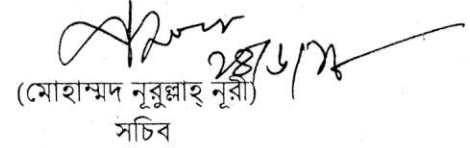 (মোহাম্মদ নূরুল্লাহ্ নূরী)
সচিব